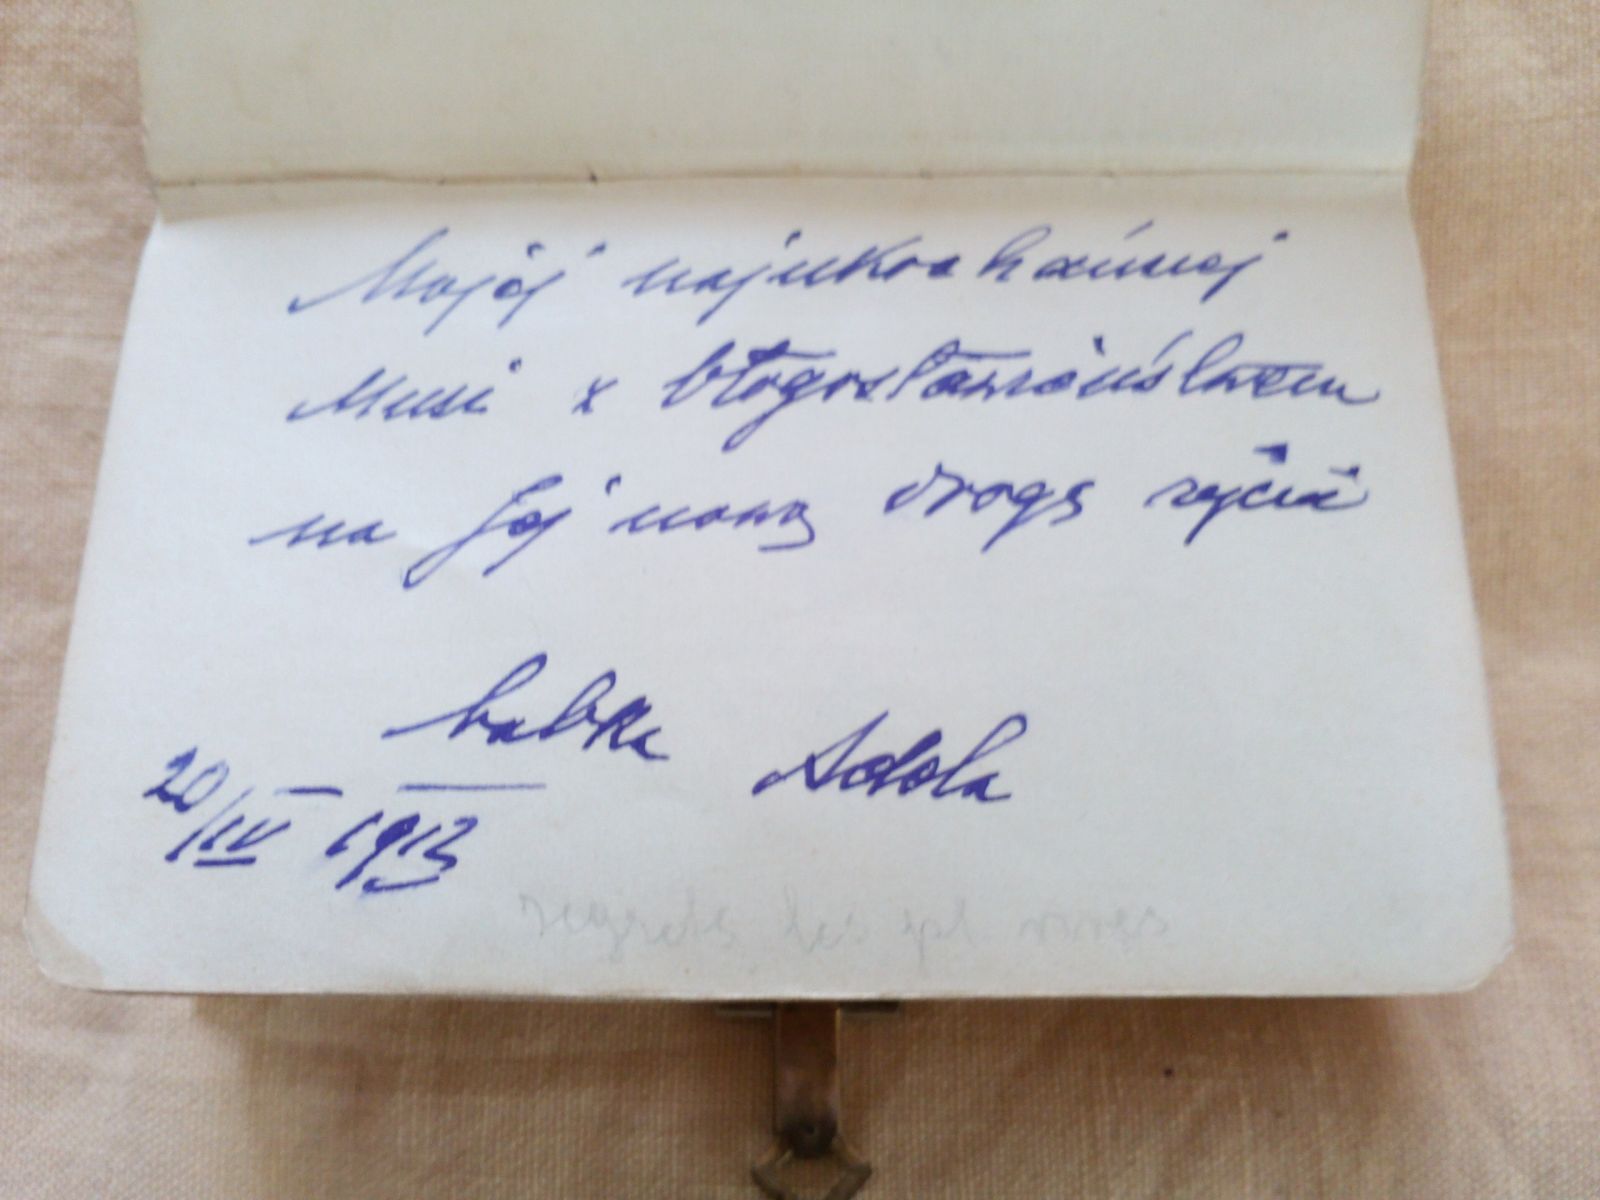 Mojej najukochańszej
Musi z błogosławieństwem
na Jej nową drogę życia
babka Adela
20/IV 1913